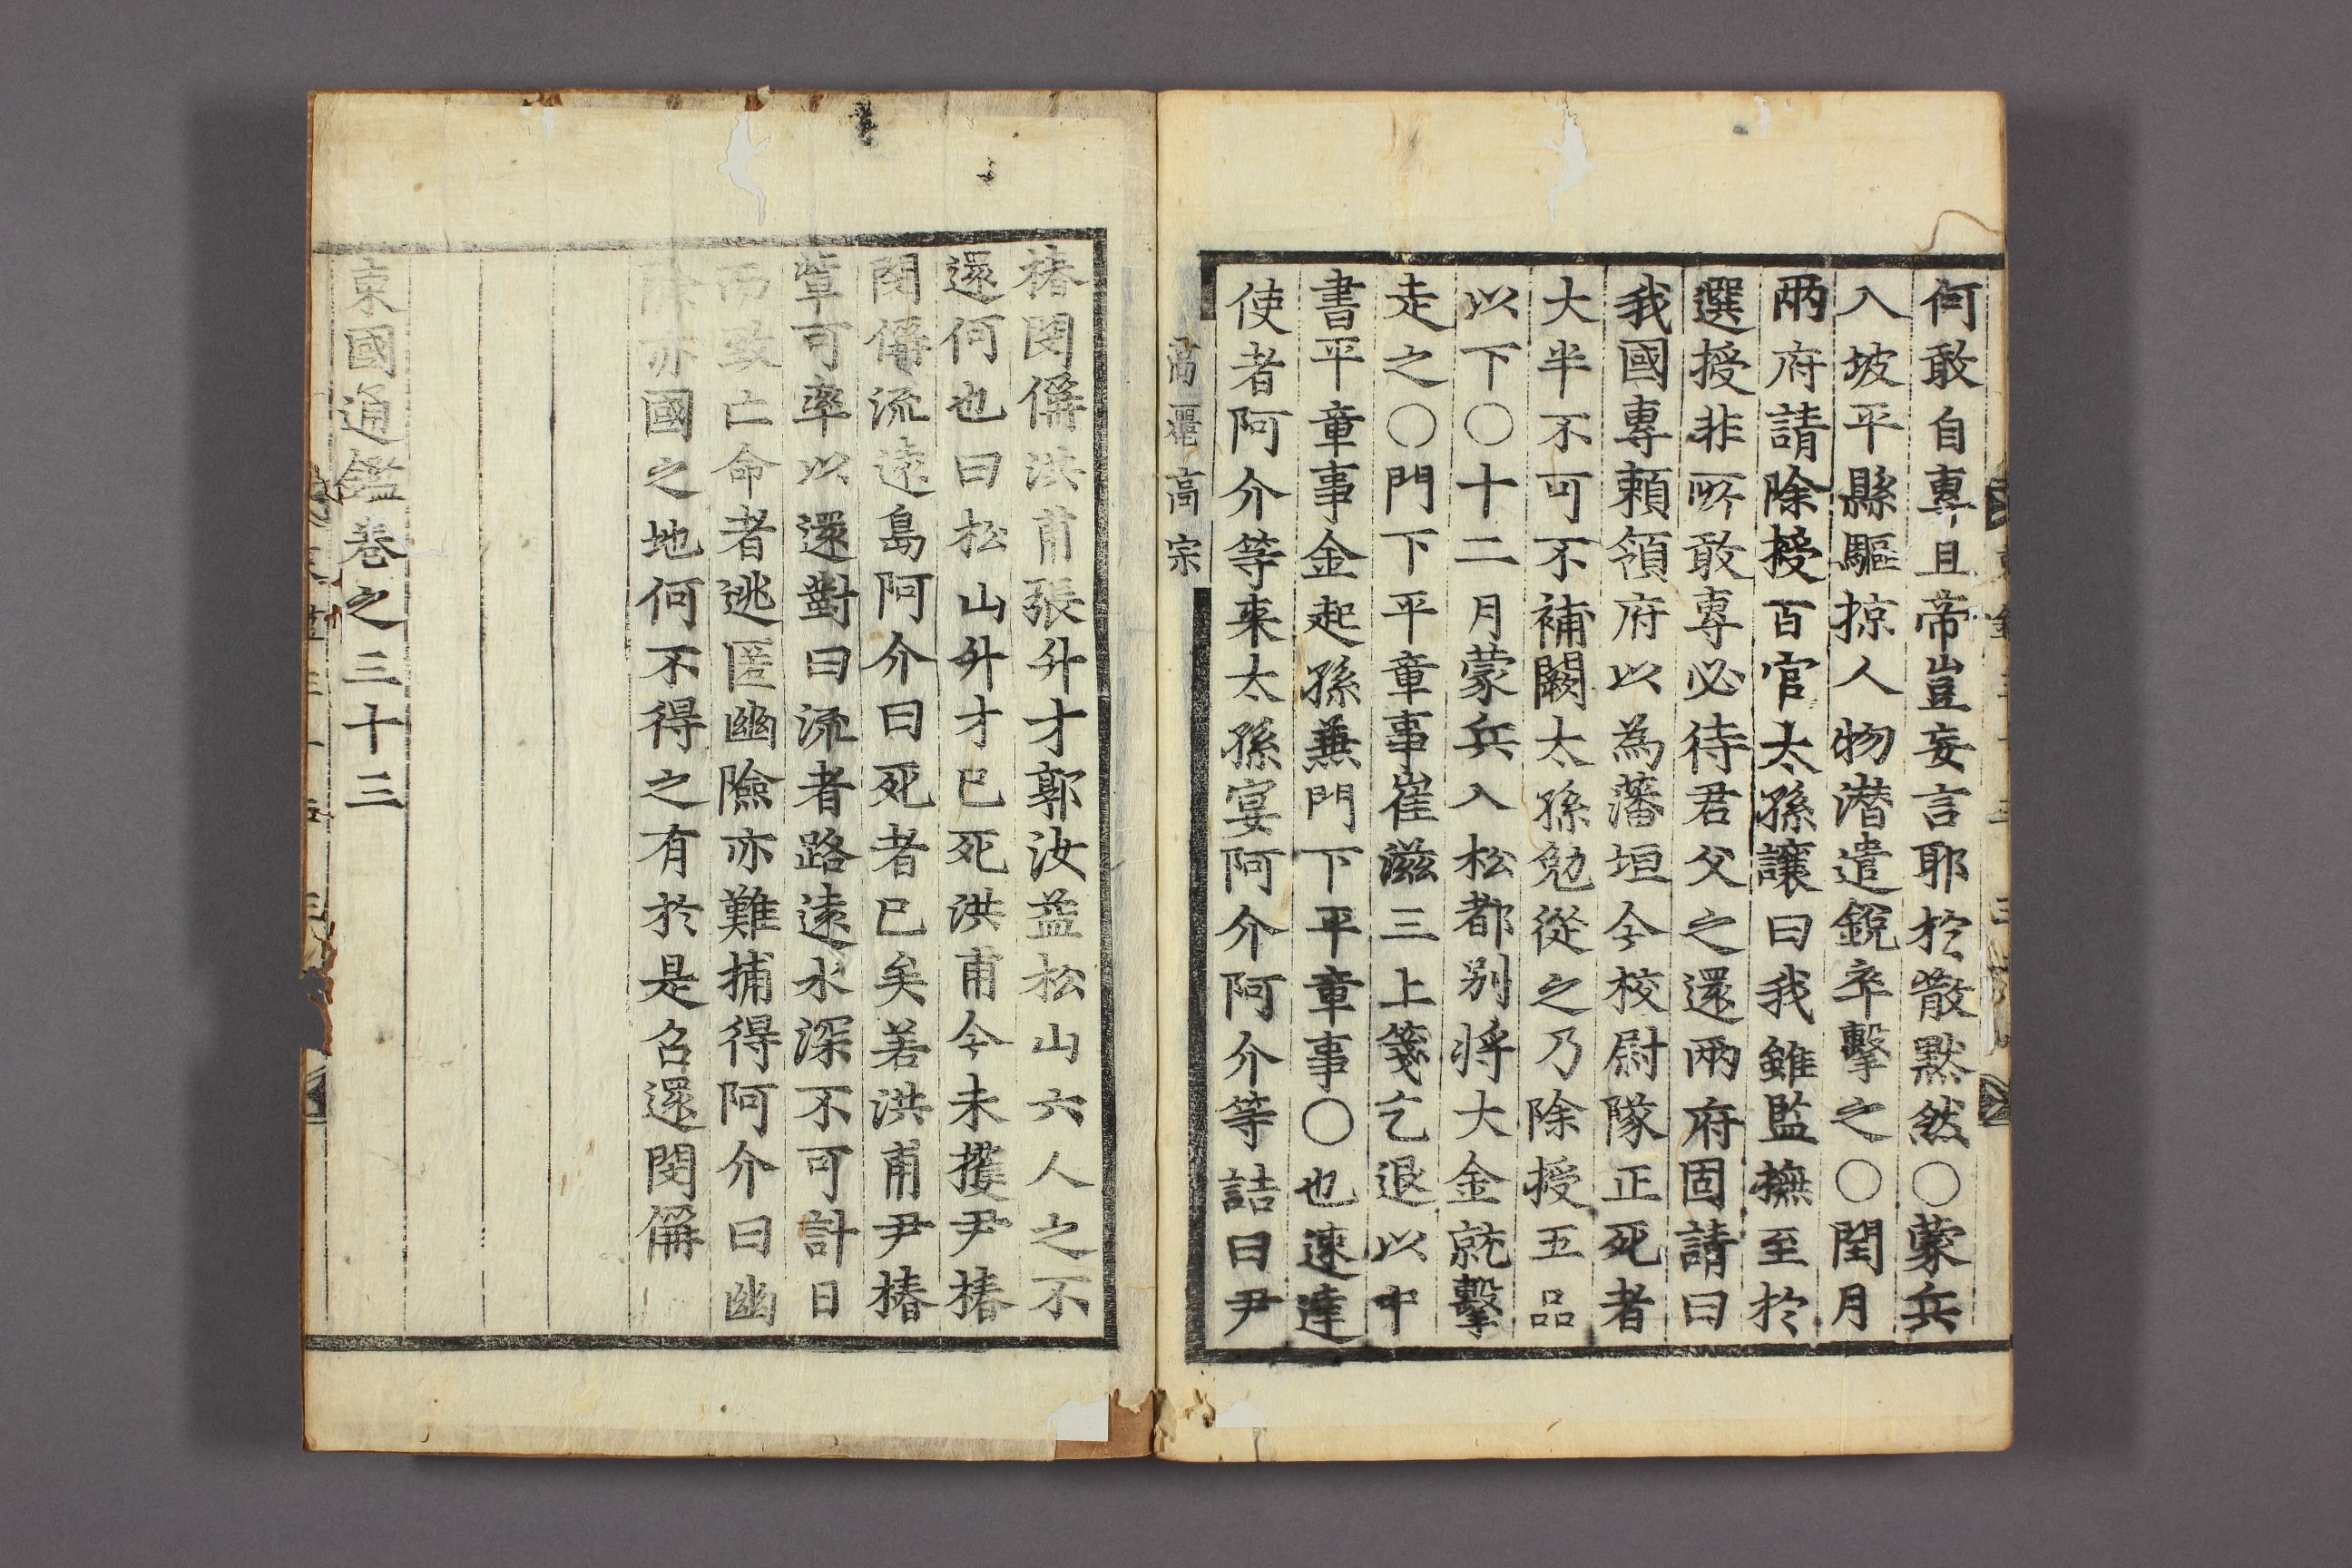 何敢自專且帝豈妄言耶於散默然○蒙兵
入坡平縣驅掠人物潛遣銳卒擊之○閏月
兩府請除授百官太孫讓曰我雖監撫至於
選授非所敢專必待君父之還兩府固請曰
我國專賴領府以為藩垣今校尉隊正死者
大半不可不補闕太孫勉從之乃除授五品
以下○十二月蒙兵入松都別將大金就擊
走之○門下平章事崔滋三上箋乞退以中
書平章事金起孫兼門下平章事○也速達
使者阿介等來太孫宴阿介阿介等詰曰尹
高麗高宗
椿閔偁洪甫張升才郭汝益松山六人之不
還何也曰松山升才已死洪甫今未獲尹椿
閔偁流遠島阿介曰死者已矣若洪甫尹椿
輩可率以還對曰流者路遠水深不可計日
而致亡命者逃匿幽險亦難捕得阿介曰幽
險亦國之地何不得之有於是召還閔偁
東國通鑑卷之三十三